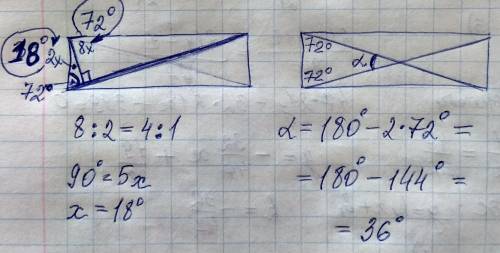 72°
18° 2x 8x 72° α
72° 72°
8:2=4:1
90°=5x
x=18°
α=180°-2·72°=
=180°-144°=
=36°